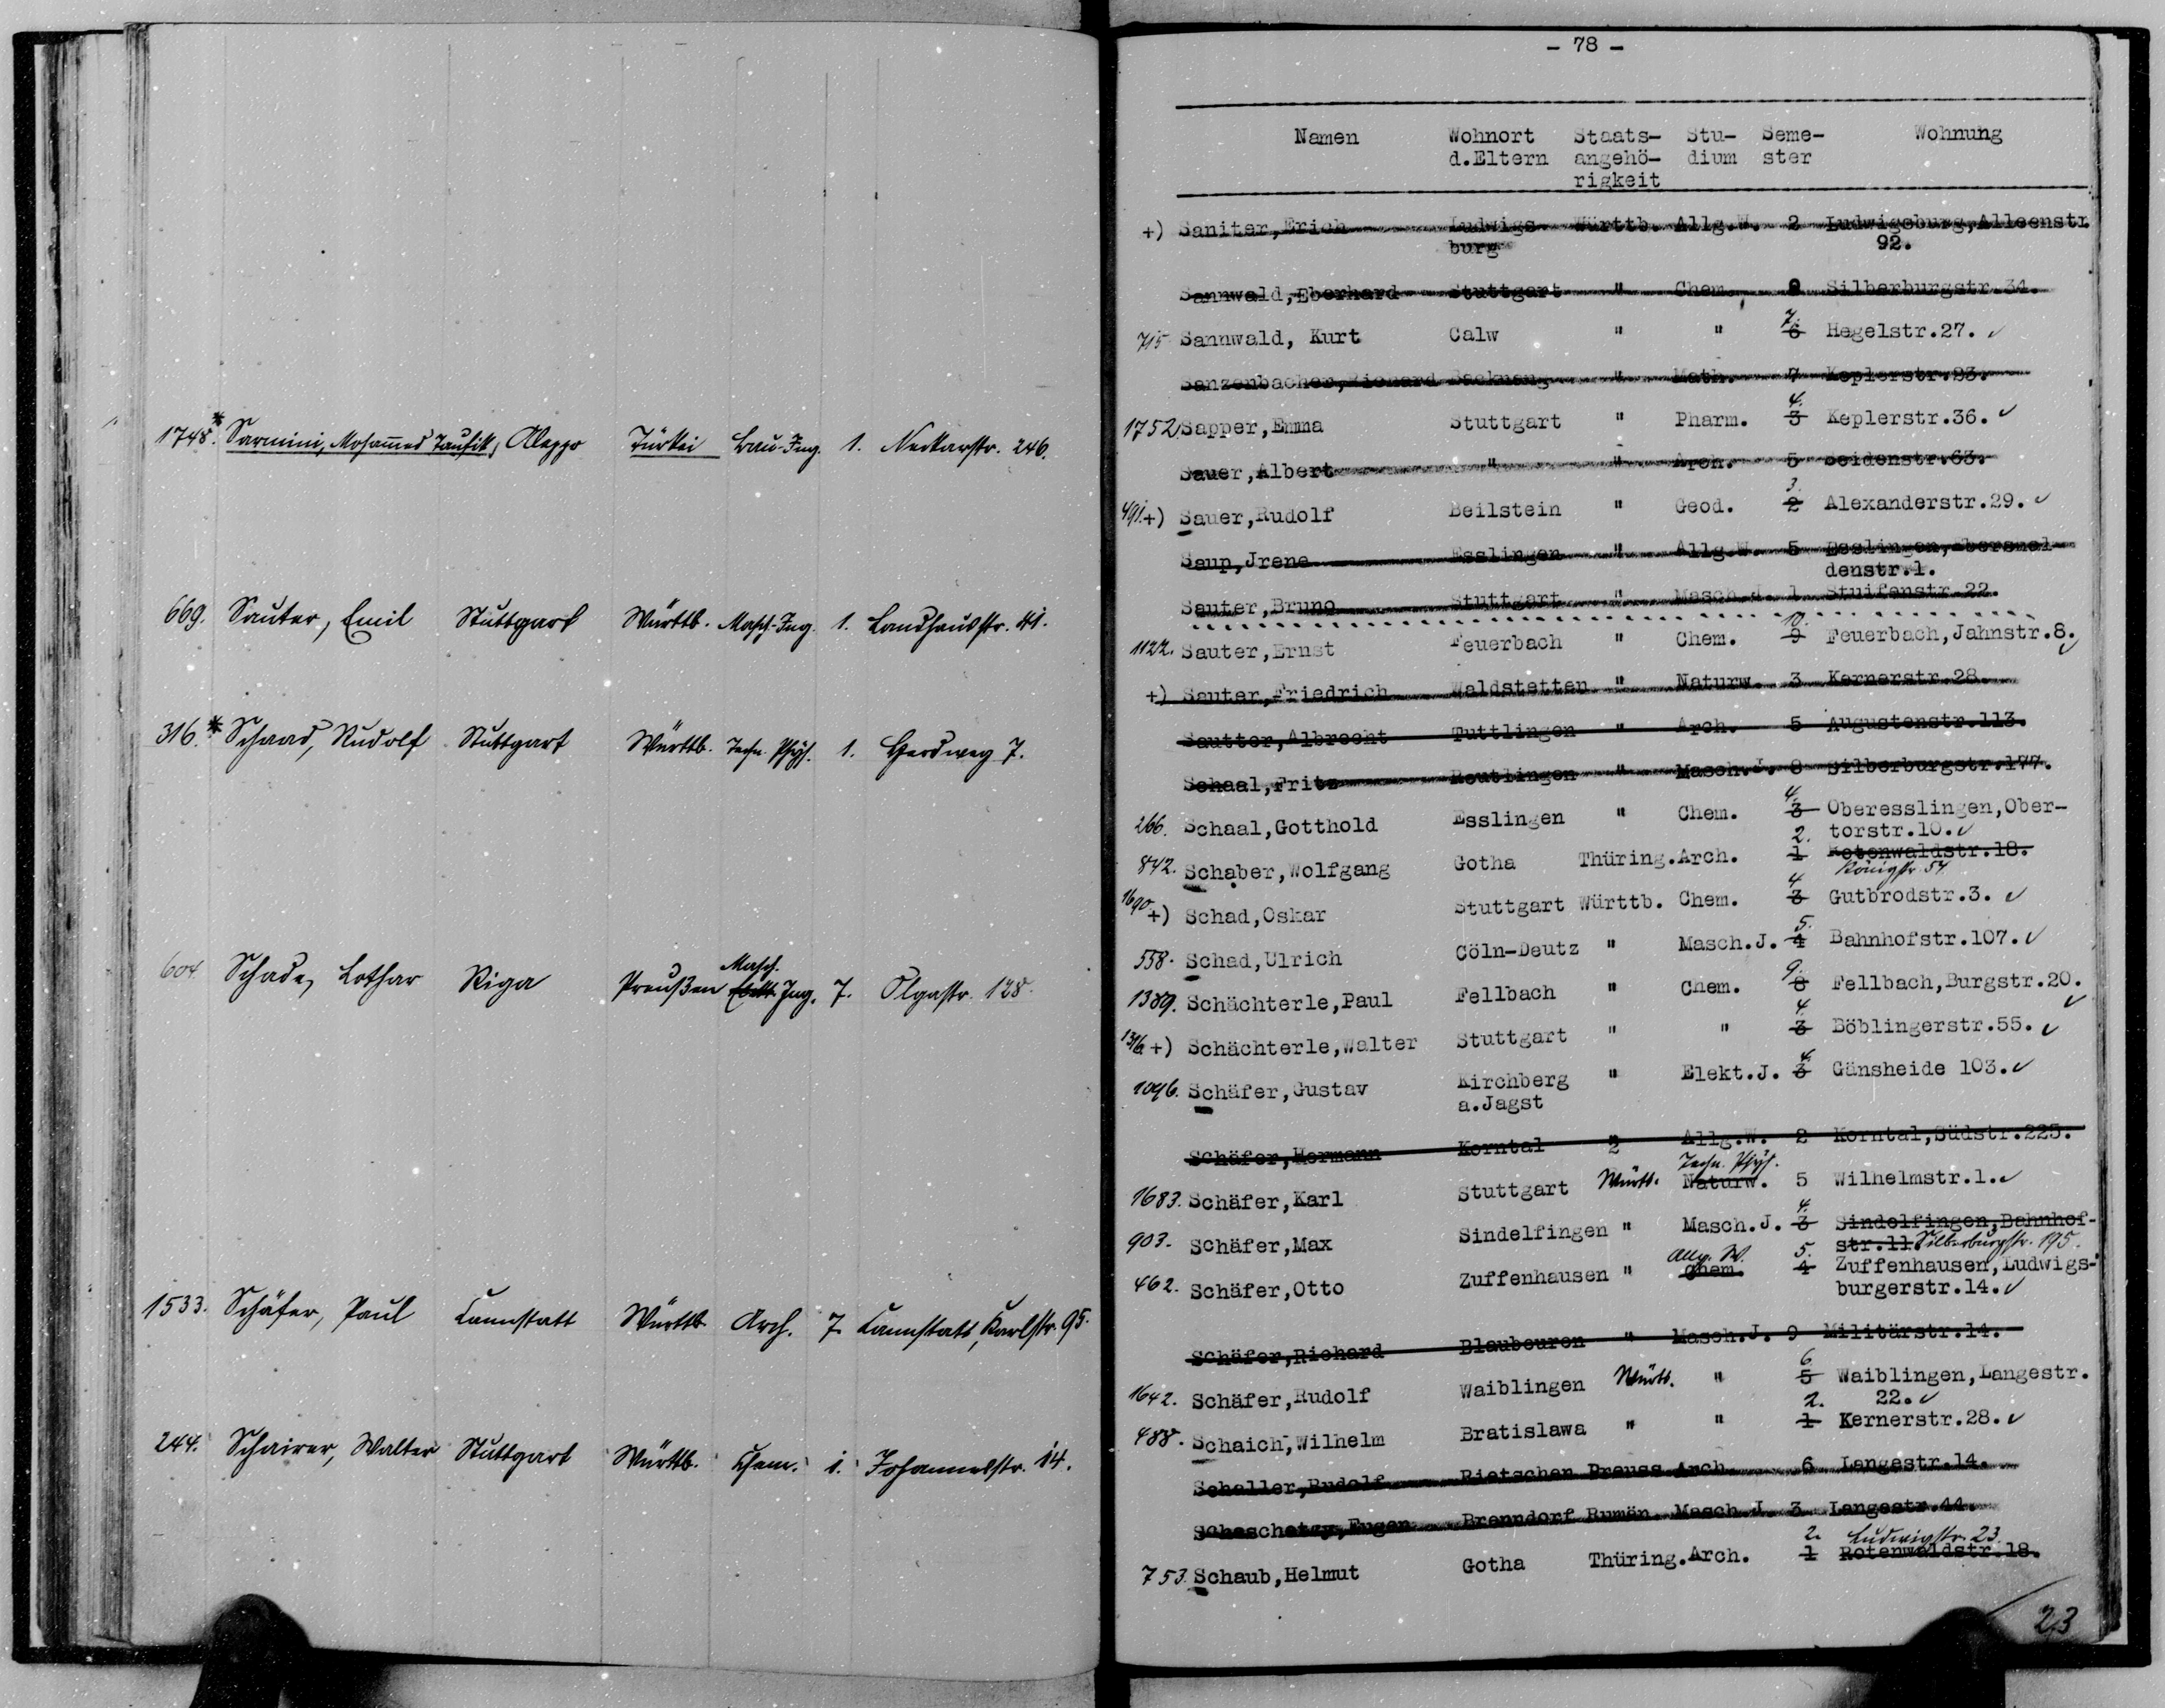 1748.* Sarmini, Mohamed Taufik, Aleppo Türkei Bau-Ing. 1. Neckarstr. 246.
669. Sauter, Emil Stuttgart Württb. Masch-Ing. 1. Landhausstr. 41.
316.* Schaad, Rudolf Stuttgart Württb. Techn. Phys. 1. Herdweg 7.
Masch.
604 Schade, Lothar Riga Preußen Elekt. Ing. 7. Olgastr. 128.
1533. Schäfer, Paul Cannstatt Württb. Arch. 7 Cannstatt, Karlstr. 95.
244. Schairer, Walter Stuttgart Württb. Chem. 1. Johannesstr. 14.
- 78 -
Namen Wohnort Staats- Stu- Seme- Wohnung
d.Eltern angehö- dium ster
rigkeit
+) Saniter,Erich Ludwigs Württb. Allg.W. 2 Ludwigsburg,Alleenstr.
burg 92.
Sannwald,Eberhard Stuttgart " Chem. 8 Silberburgstr.34.
7.
715 Sannwald, Kurt Calw " " 6 Hegelstr.27. ✓
Sanzenbacher,Richard Backnang " Math. 7 Keplerstr.23.
4.
1752 Sapper,Emma Stuttgart " Pharm. 3 Keplerstr.36. ✓
Sauer,Albert " " Arch. 5 Seidenstr.63.
3.
491.+) Sauer,Rudolf Beilstein " Geod. 2 Alexanderstr.29. ✓
Saup,Jrene Esslingen " Allg.W. 5 Esslingen,
denstr.1.
Sauter,Bruno Stuttgart " Masch.J. 1 Stuifenstr.22.
10.
1122. Sauter,Ernst Feuerbach " Chem. 9 Feuerbach,Jahnstr.8. ✓
+) Sauter,Friedrich Waldstetten " Naturw. 3 Kernerstr.28.
Sautter,Albrecht Tuttlingen " Arch. 5 Augustenstr.113.
Schaal,Fritz Reutlingen " Masch.J. 8 Silberburgstr.177.
4.
266. Schaal,Gotthold Esslingen " Chem. 3 Oberesslingen,Ober-
torstr.10. ✓
2.
842. Schaber,Wolfgang Gotha Thüring.Arch. 1 Rotenwaldstr.18.
Königstr. 54.
4
1690 +) Schad,Oskar Stuttgart Württb. Chem. 3 Gutbrodstr.3. ✓
5.
558. Schad,Ulrich Cöln-Deutz " Masch.J. 4 Bahnhofstr.107. ✓
9.
1389. Schächterle,Paul Fellbach " Chem. 8 Fellbach,Burgstr.20. ✓
4.
1316 +) Schächterle,Walter Stuttgart " " 3 Böblingerstr.55. ✓
4.
1096. Schäfer,Gustav Kirchberg " Elekt.J. 3 Gänsheide 103. ✓
a.Jagst
Schäfer,Hermann Korntal 2 Allg.W. 2 Korntal,Südstr.225.
Techn. Phys.
1683. Schäfer,Karl Stuttgart Württ. Naturw. 5 Wilhelmstr.1. ✓
4.
903. Schäfer,Max Sindelfingen " Masch.J. 3 Sindelfingen,Bahnhof-
str.11. Silberburgstr. 195.
Allg. W. 5.
462. Schäfer,Otto Zuffenhausen " Chem. 4 Zuffenhausen,Ludwigs-
burgerstr.14. ✓
Schäfer,Richard Blaubeuren " Masch.J. 9 Militärstr.14.
6
1642. Schäfer,Rudolf Waiblingen Württ. " 5 Waiblingen,Langestr.
22. ✓
2.
488. Schaich,Wilhelm Bratislawa " " 1 Kernerstr.28. ✓
Schaller,Rudolf Rietschen Preuss.Arch. 6 Langestr.14.
Schaschetzy,Eugen Brenndorf Rumän. Masch.J. 3 Langestr.44.
2. Ludwigstr. 23
753. Schaub,Helmut Gotha Thüring.Arch. 1 Rotenwaldstr.18.
23